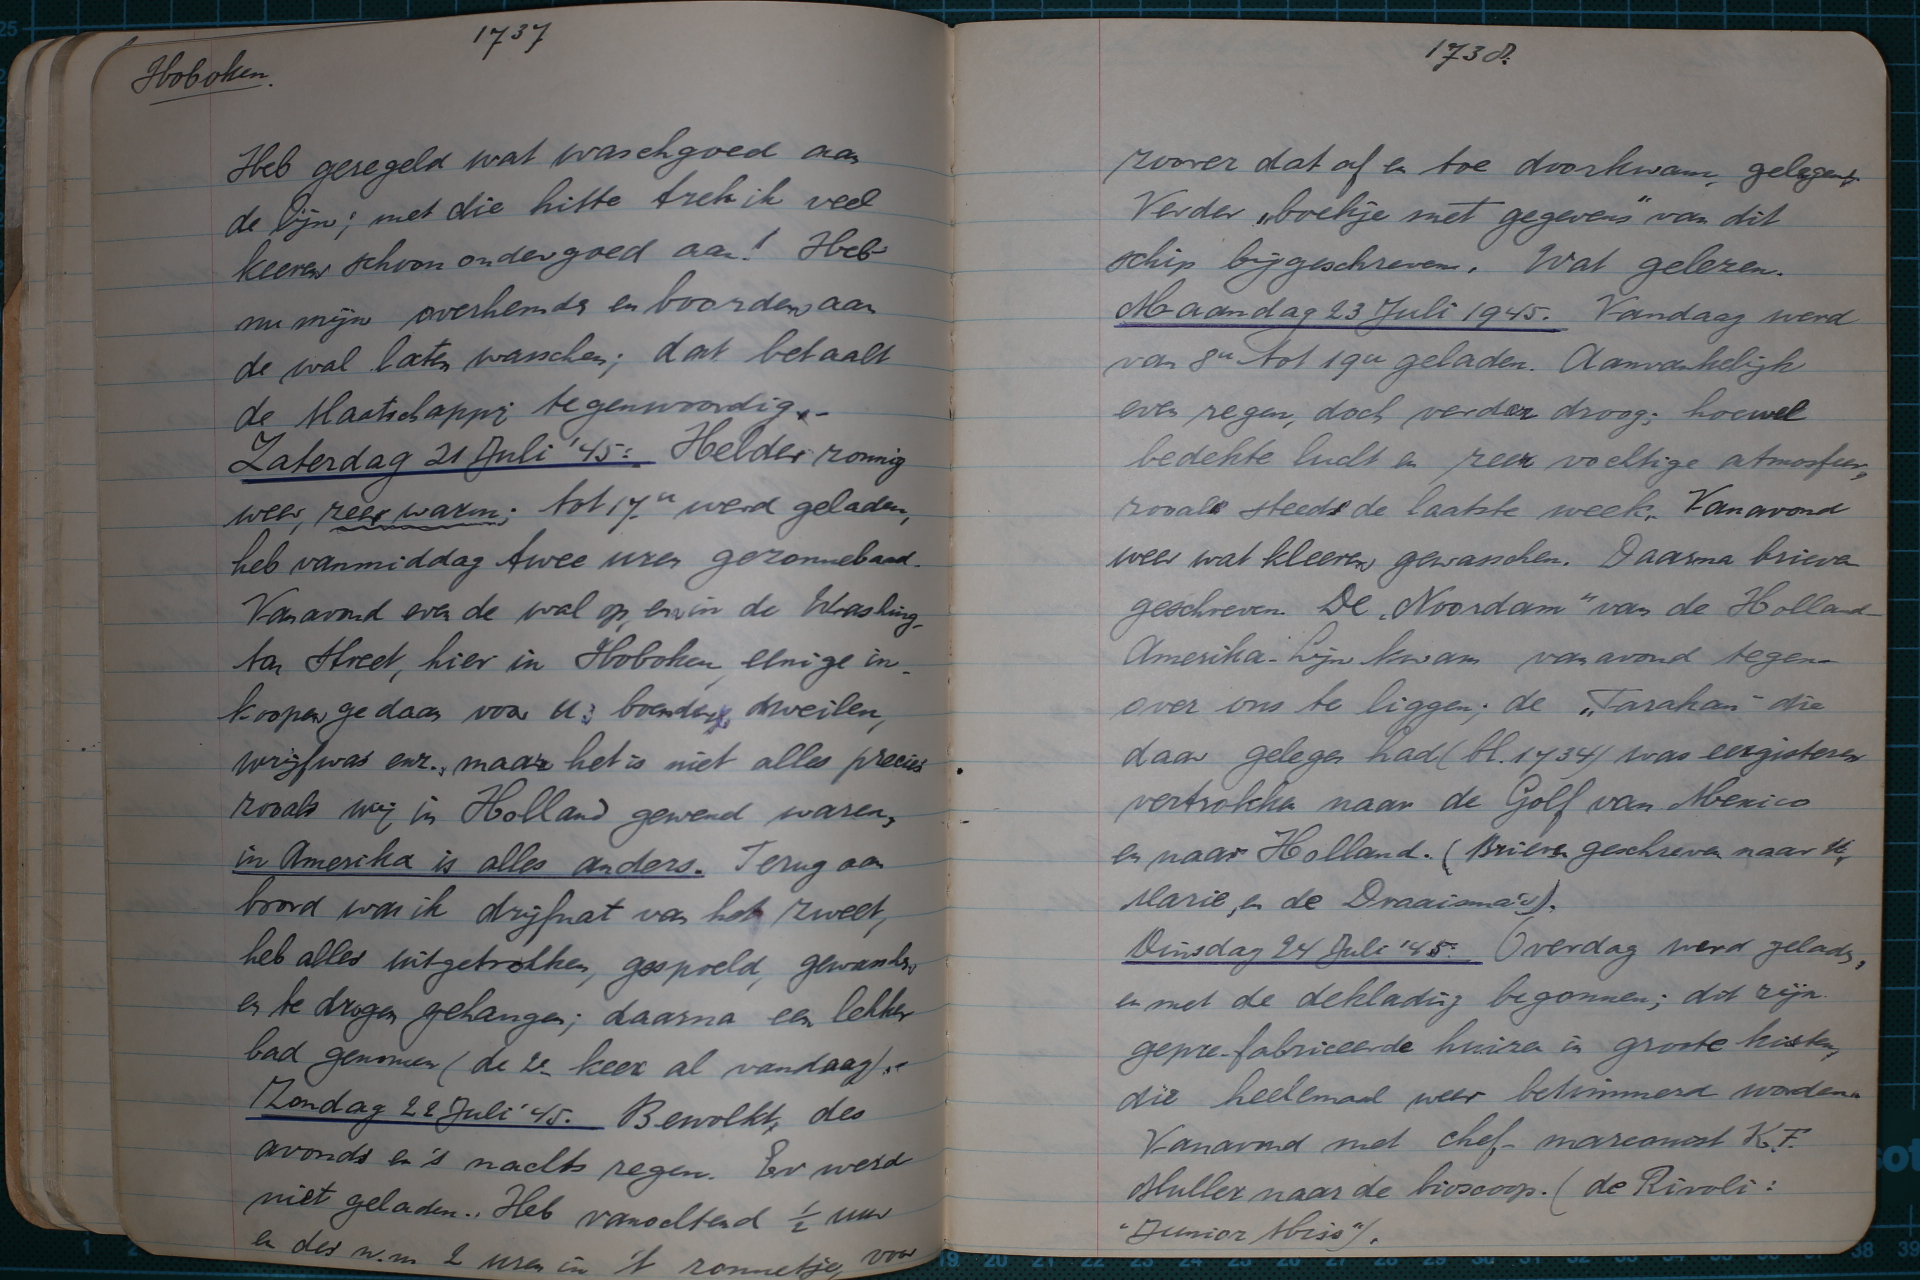 1737
Hoboken.
Heb geregeld wat waschgoed aan
de lijn; met die hitte trek ik veel
keeren schoon ondergoed aan! Heb
nu mijn overhemds en boorden aan
de wal laten wasschen; dat betaalt
de Maatschappij tegenwoordig.-
Zaterdag 21 Juli '45: Helder zonnig
weer, zeer warm; tot 17u werd geladen,
heb vanmiddag twee uren gezonnebaad.
Vanavond even de wal op, en in de Washing-
ton Street, hier in Hoboken, eenige in-
koopen gedaan voor U: boenders, dweilen,
wrijfwas enz., maar het is niet alles precies
zooals wij in Holland gewend waren,
in Amerika is alles anders. Terug aan
boord was ik drijfnat van het zweet,
heb alles uitgetrokken, gespoeld, gewasschen
en te drogen gehangen; daarna een lekker
bad genomen (de 2e keer al vandaag).-
Zondag 22 Juli '45. Bewolkt, des
avonds en 's nachts regen. Er werd
niet geladen. Heb vanochtend ½ uur
en des n.m 2 uren in 't zonnetje, voor
1738.
zoover dat af en toe doorkwam, gelegen.
Verder „boekje met gegevens" van dit
schip bijgeschreven. Wat gelezen.
Maandag 23 Juli 1945. Vandaag werd
van 8u tot 19u geladen. Aanvankelijk
even regen, doch verder droog; hoewel
bedekte lucht en zeer vochtige atmosfeer,
zooals steeds de laatste week. Vanavond
weer wat kleeren gewasschen. Daarna brieven
geschreven. De „Noordam" van de Holland-
Amerika-Lijn kwam vanavond tegen-
over ons te liggen; de „Tarakan" die
daar gelegen had (bl. 1734) was eergisteren
vertrokken naar de Golf van Mexico
en naar Holland. (Brieven geschreven naar U,
Marie, en de Draaisma's).
Dinsdag 24 Juli '45: Overdag werd geladen,
en met de deklading begonnen; dat zijn
gepre-fabriceerde huizen in groote kisten,
die heelemaal weer betimmerd worden.
Vanavond met chef-marconist K.F.
Muller naar de bioscoop. (de Rivoli:
"Junior Miss").